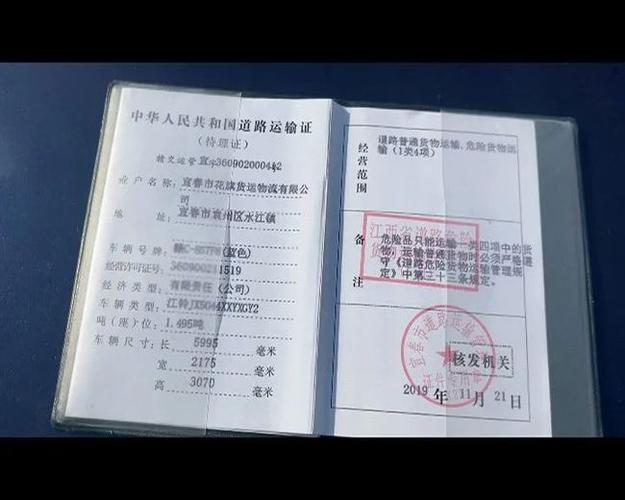 中华人民共和国道路运输证
（待理证）
赣交运管 宜字360902000412
业户名称：宜春市花旗货运物流有限公
司
地 址：宜春市袁州区水江镇
车辆号牌：（蓝色）
经营许可证号：360900211519
经济类型：有限责任（公司）
车辆类型：江铃JX5044XXYXGY2
吨（座）位：1.495吨
车辆尺寸：长 5995 毫米
宽 2175 毫米
高 3070 毫米
经营范围
道路普通货物运输,危险货物运
输（1类4项）
备注
危险品只能运输一类四项中的货
物，运输普通货物时必须严格遵
守《道路危险货物运输管理规
定》中第三十三条规定。
江西省道路危险
宜春市道路运输
证件专用章
核发机关
2019 年 11 月 21 日